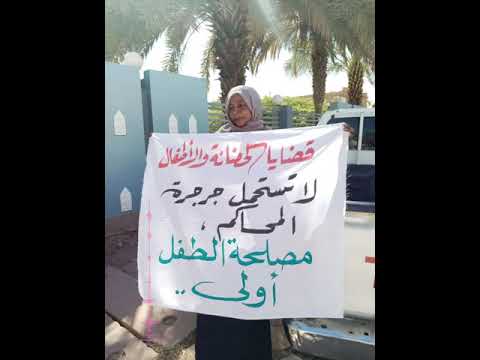 قضايا الحضانة والأطفال
لا تستحمل جرجرة
المحاكم ،
مصلحة الطفل
أولى ..